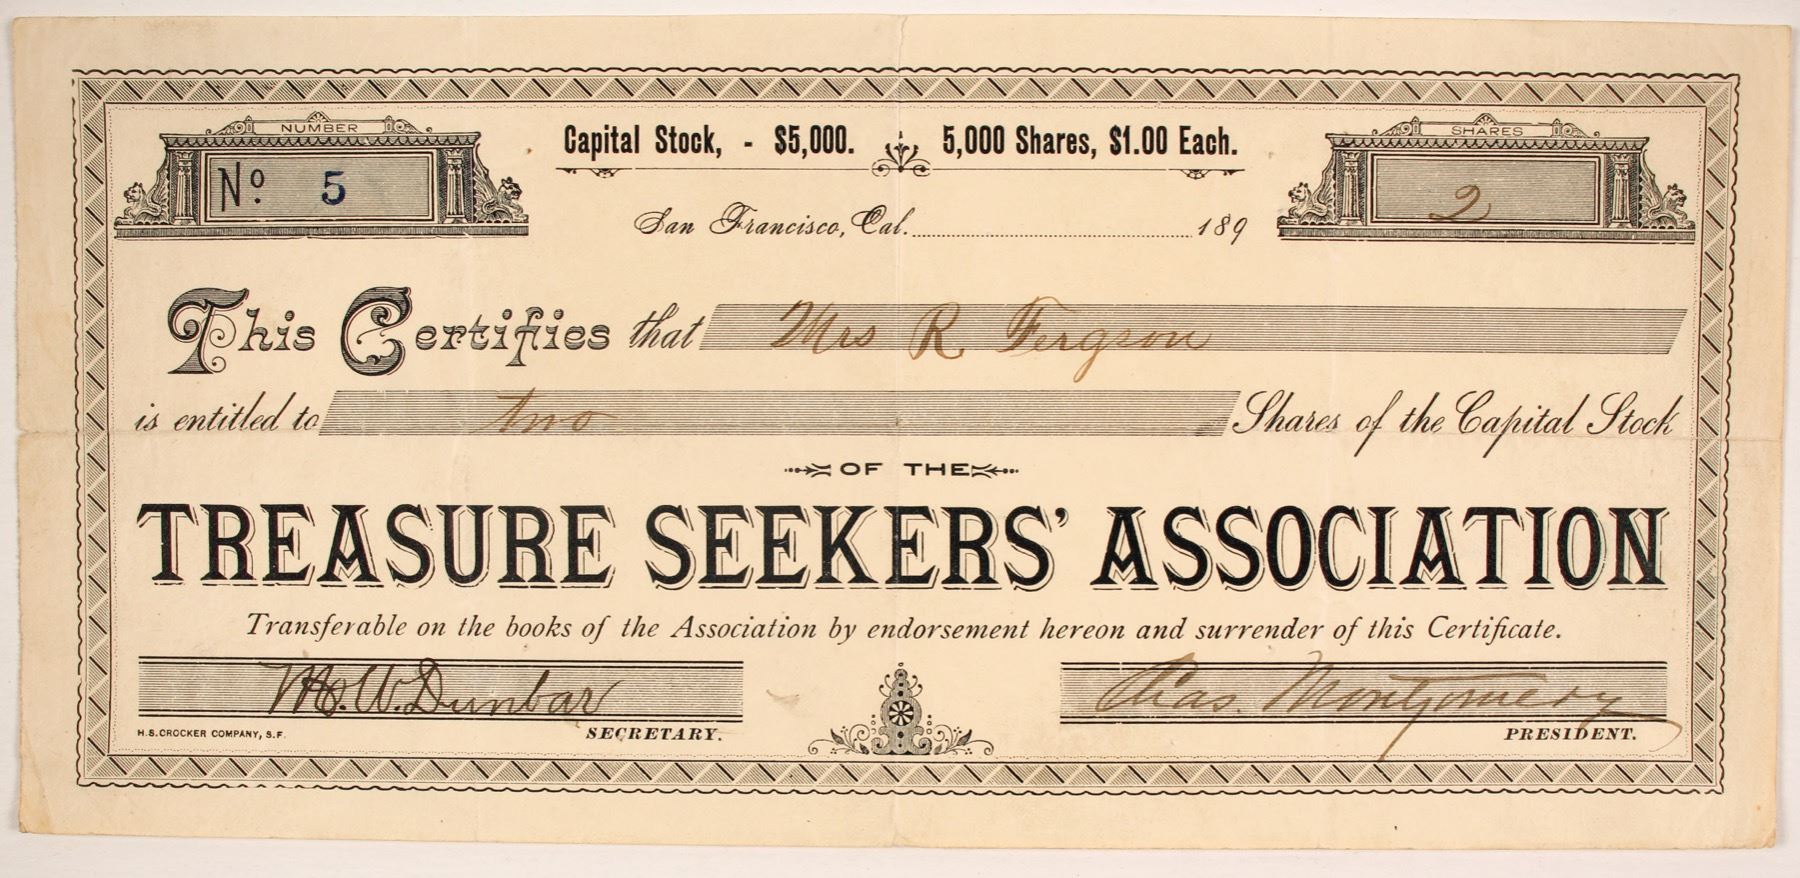 NUMBER
No. 5
Capital Stock, - $5,000. 5,000 Shares, $1.00 Each.
SHARES
2
San Francisco, Cal. 189
This Certifies that Mrs R Fergson
is entitled to two Shares of the Capital Stock
OF THE
TREASURE SEEKERS' ASSOCIATION
Transferable on the books of the Association by endorsement hereon and surrender of this Certificate.
M. W. Dunbar Chas. Montgomery
H.S. CROCKER COMPANY, S.F. SECRETARY. PRESIDENT.